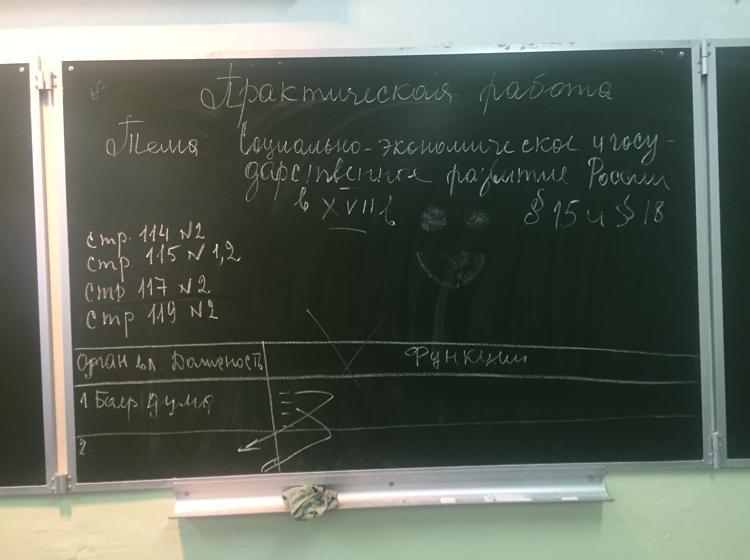 Практическая работа
Тема Социально-экономическое и госу-
дарственное развитие России
в XVII в § 15 и § 18
стр. 114 №2
стр. 115 №1,2
стр 117 №2
стр 119 №2
Орган вл. Должность Функции
1 Бояр Дума
2.